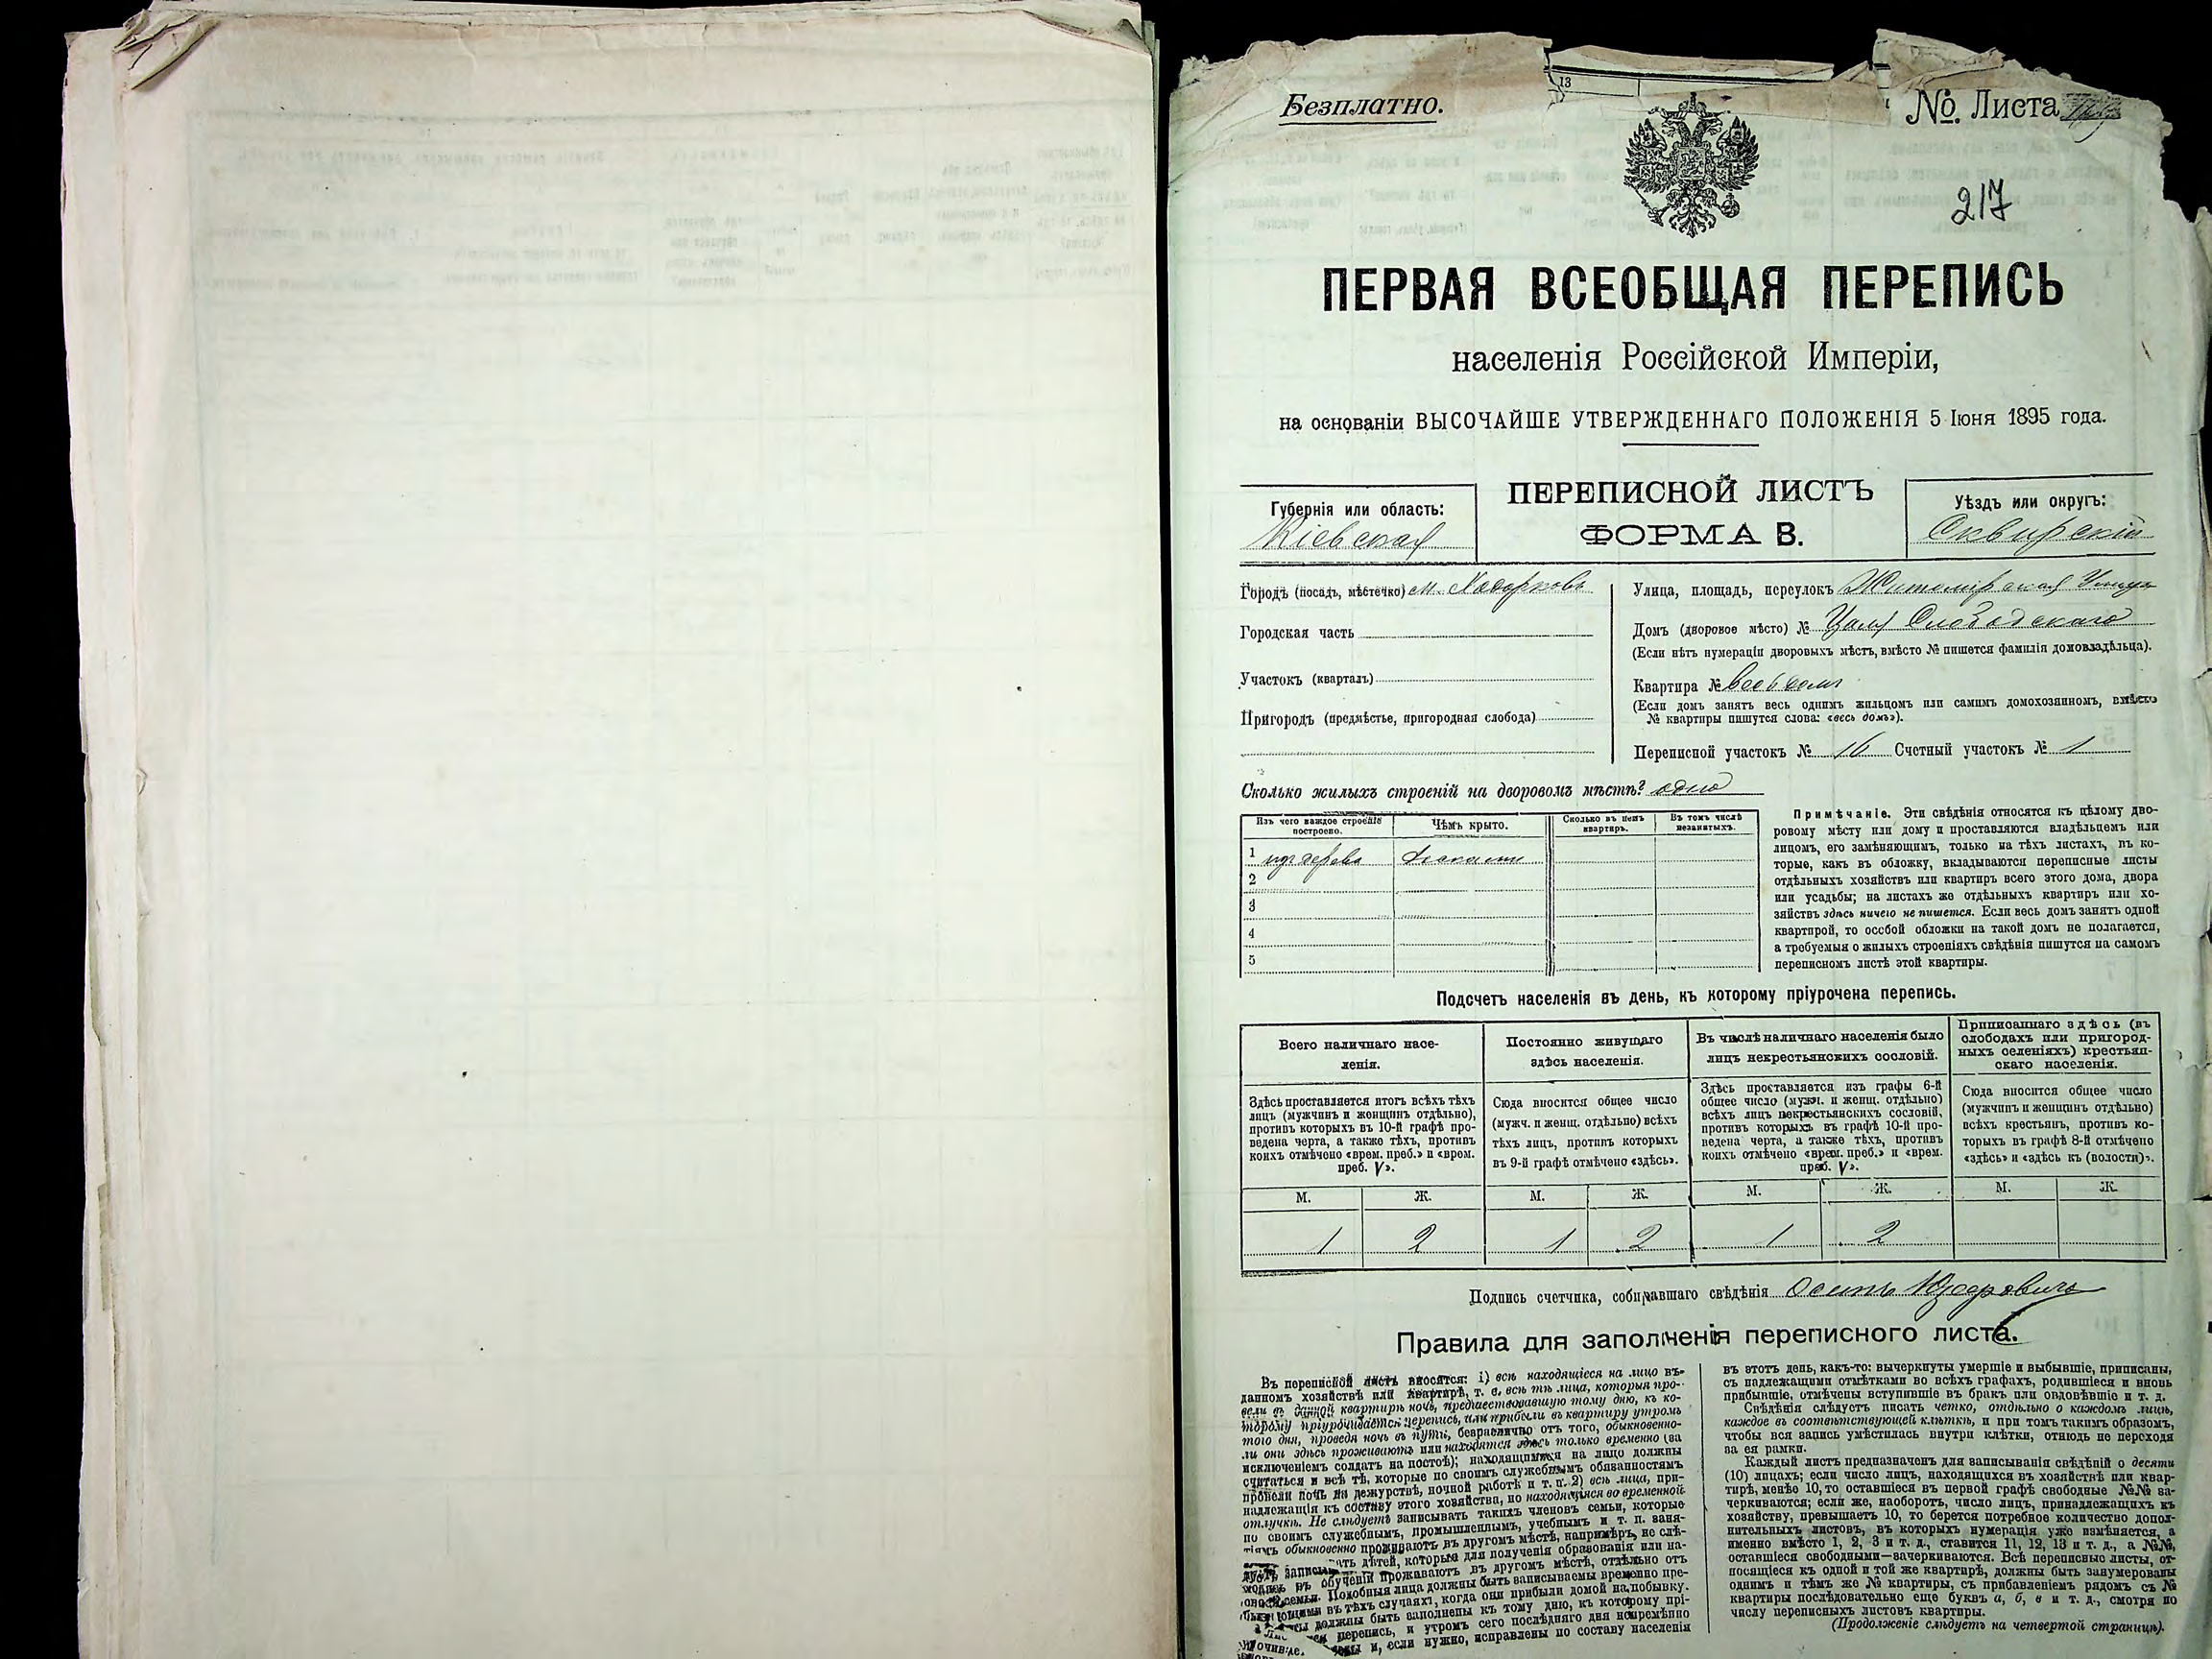 Безплатно.
№ Листа
13
217
ПЕРВАЯ ВСЕОБЩАЯ ПЕРЕПИСЬ
населенія Россійской Имперіи,
на основаніи ВЫСОЧАЙШЕ УТВЕРЖДЕННАГО ПОЛОЖЕНІЯ 5 Іюня 1895 года.
Губернія или область:
Кіевская
ПЕРЕПИСНОЙ ЛИСТЪ
ФОРМА В.
Уѣздъ или округъ:
Сквирскій
Городъ (посадъ, мѣстечко) м. Ходорковъ
Городская часть
Участокъ (кварталъ)
Пригородъ (предмѣстье, пригородная слобода)
Улица, площадь, переулокъ Житомірская Улица
Домъ (дворовое мѣсто) №
(Если нѣтъ нумераціи дворовыхъ мѣстъ, вмѣсто № пишется фамилія домовладѣльца).
Квартира № весь домъ
(Если домъ занятъ весь однимъ жильцомъ или самимъ домохозяиномъ, вмѣсто
№ квартиры пишутся слова: «весь домъ»).
Переписной участокъ № 16 Счетный участокъ № 1
Сколько жилыхъ строеній на дворовомъ мѣстѣ? одно
Изъ чего каждое строеніе построено.
Чѣмъ крыто.
Сколько въ немъ квартиръ.
Въ томъ числѣ незанятыхъ.
1 изъ дерева
2
3
4
5
Примѣчаніе. Эти свѣдѣнія относятся къ цѣлому дво-
ровому мѣсту или дому и проставляются владѣльцемъ или
лицомъ, его замѣняющимъ, только на тѣхъ листахъ, въ ко-
торые, какъ въ обложку, вкладываются переписные листы
отдѣльныхъ хозяйствъ или квартиръ всего этого дома, двора
или усадьбы; на листахъ же отдѣльныхъ квартиръ или хо-
зяйствъ здѣсь ничего не пишется. Если весь домъ занятъ одной
квартирой, то особой обложки на такой домъ не полагается,
а требуемыя о жилыхъ строеніяхъ свѣдѣнія пишутся на самомъ
переписномъ листѣ этой квартиры.
Подсчетъ населенія въ день, къ которому пріурочена перепись.
Всего наличнаго насе-
ленія.
Здѣсь проставляется итогъ всѣхъ тѣхъ
лицъ (мужчинъ и женщинъ отдѣльно),
противъ которыхъ въ 10-й графѣ про-
ведена черта, а также тѣхъ, противъ
коихъ отмѣчено «врем. преб.» и «врем.
преб. V».
Постоянно живущаго
здѣсь населенія.
Сюда вносится общее число
(мужч. и женщ. отдѣльно) всѣхъ
тѣхъ лицъ, противъ которыхъ
въ 9-й графѣ отмѣчено «здѣсь».
Въ числѣ наличнаго населенія было
лицъ некрестьянскихъ сословій.
Здѣсь проставляется изъ графы 6-й
общее число (мужч. и женщ. отдѣльно)
всѣхъ лицъ некрестьянскихъ сословій,
противъ которыхъ въ графѣ 10-й про-
ведена черта, а также тѣхъ, противъ
коихъ отмѣчено «врем. преб.» и «врем.
преб. V».
Приписаннаго здѣсь (въ
слободахъ или пригород-
ныхъ селеніяхъ) крестьян-
скаго населенія.
Сюда вносится общее число
(мужчинъ и женщинъ отдѣльно)
всѣхъ крестьянъ, противъ ко-
торыхъ въ графѣ 8-й отмѣчено
«здѣсь» и «здѣсь къ (волости)».
М. Ж. М. Ж. М. Ж. М. Ж.
1 2 1 2 1 2
Подпись счетчика, собиравшаго свѣдѣнія Осипъ
Правила для заполненія переписного листа.
Въ переписной листъ вносятся: 1) всѣ находящіеся на лицо въ
данномъ хозяйствѣ или квартирѣ, т. е. всѣ тѣ лица, которыя про-
вели въ данной квартирѣ ночь, предшествовавшую тому дню, къ ко-
торому пріурочивается перепись, или прибыли въ квартиру утромъ
того дня, проведя ночь въ пути, безразлично отъ того, обыкновенно-
ли они здѣсь проживаютъ или находятся здѣсь только временно (за
исключеніемъ солдатъ на постоѣ); находящимися на лицо должны
считаться и всѣ тѣ, которые по своимъ служебнымъ обязанностямъ
провели ночь на дежурствѣ, ночной работѣ и т. п. 2) всѣ лица, при-
надлежащія къ составу этого хозяйства, но находящіяся во временной
отлучкѣ. Не слѣдуетъ записывать такихъ членовъ семьи, которые
по своимъ служебнымъ, промышленнымъ, учебнымъ и т. п. заня-
тіямъ обыкновенно проживаютъ въ другомъ мѣстѣ, напримѣръ, не слѣ-
дуетъ записывать дѣтей, которые для полученія образованія или на-
въ обученіи проживаютъ въ другомъ мѣстѣ, отдѣльно отъ
семьи. Подобныя лица должны быть записываемы временно пре-
въ тѣхъ случаяхъ, когда они прибыли домой на побывку.
должны быть заполнены къ тому дню, къ которому прі-
перепись, и утромъ сего послѣдняго дня непремѣнно
и, если нужно, исправлены по составу населенія
въ этотъ день, какъ-то: вычеркнуты умершіе и выбывшіе, приписаны,
съ надлежащими отмѣтками во всѣхъ графахъ, родившіеся и вновь
прибывшіе, отмѣчены вступившіе въ бракъ или овдовѣвшіе и т. д.
Свѣдѣнія слѣдуетъ писать четко, отдѣльно о каждомъ лицѣ,
каждое въ соотвѣтствующей клѣткѣ, и при томъ такимъ образомъ,
чтобы вся запись умѣстилась внутри клѣтки, отнюдь не переходя
за ея рамки.
Каждый листъ предназначенъ для записыванія свѣдѣній о десяти
(10) лицахъ; если число лицъ, находящихся въ хозяйствѣ или квар-
тирѣ, менѣе 10, то оставшіеся въ первой графѣ свободные №№ за-
черкиваются; если же, наоборотъ, число лицъ, принадлежащихъ къ
хозяйству, превышаетъ 10, то берется потребное количество допол-
нительныхъ листовъ, въ которыхъ нумерація уже измѣняется, а
именно вмѣсто 1, 2, 3 и т. д., ставится 11, 12, 13 и т. д., а №№,
оставшіеся свободными—зачеркиваются. Всѣ переписные листы, от-
носящіеся къ одной и той же квартирѣ, должны быть занумерованы
однимъ и тѣмъ же № квартиры, съ прибавленіемъ рядомъ съ №
квартиры послѣдовательно еще буквъ а, б, в и т. д., смотря по
числу переписныхъ листовъ квартиры.
(Продолженіе слѣдуетъ на четвертой страницѣ).